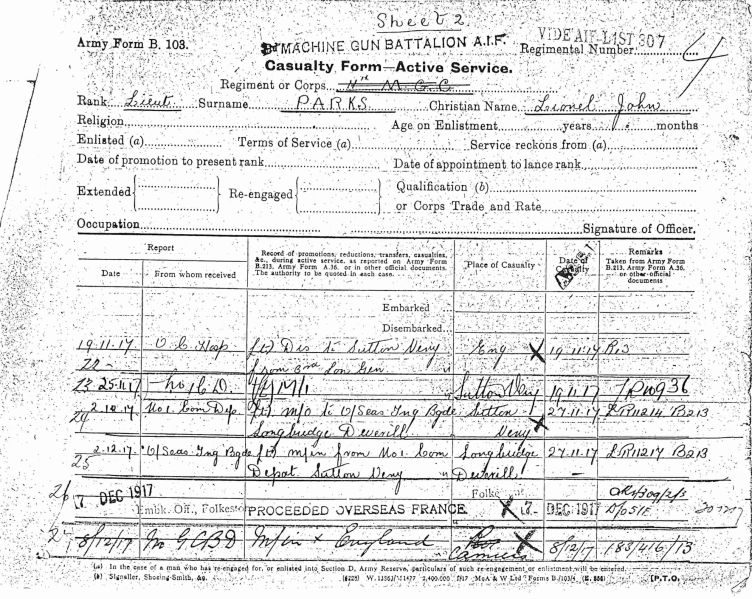 Sheet 2
Army Form B. 103.
MACHINE GUN BATTALION A.I.F.
VIDE AIF LIST 307
Regimental Number
Casualty Form—Active Service.
Regiment or Corps M G C
Rank Lieut Surname PARKS Christian Name Lionel John
Religion Age on Enlistment years months
Enlisted (a) Terms of Service (a) Service reckons from (a)
Date of promotion to present rank Date of appointment to lance rank
Extended Re-engaged Qualification (b)
or Corps Trade and Rate
Occupation Signature of Officer.
Report
Date From whom received
Record of promotions, reductions, transfers, casualties, &c., during active service, as reported on Army Form B.213, Army Form A.36, or in other official documents. The authority to be quoted in each case.
Place of Casualty
Date of Casualty
Remarks
Taken from Army Form B.213, Army Form A.36, or other official documents
Embarked
Disembarked
19.11.17 O.C. Hosp Dis to Sutton Veny Eng X 19.11.17
22 from 3rd Lon Gen
23 25.11.17 M/I Sutton Veny 19.11.17
24 2.12.17 No 1 Com Dep m/o to O/Seas Tng Bgde Sutton 27.11.17 B213
Longbridge Deverill Veny X
25 2.12.17 O/Seas Tng Bgde m/in from No 1 Com Longbridge 27.11.17 B213
Depot Sutton Veny Deverill
26 7 DEC 1917
Embk. Off., Folkestone PROCEEDED OVERSEAS FRANCE X 7 - DEC 1917
27 8/12/17 M G C B D M/in x England Camiers X 8/12/17 183/416/13
(a) In the case of a man who has re-engaged for, or enlisted into Section D, Army Reserve, particulars of such re-engagement or enlistment will be entered.
(b) Signaller, Shoeing-Smith, &c. [P.T.O.